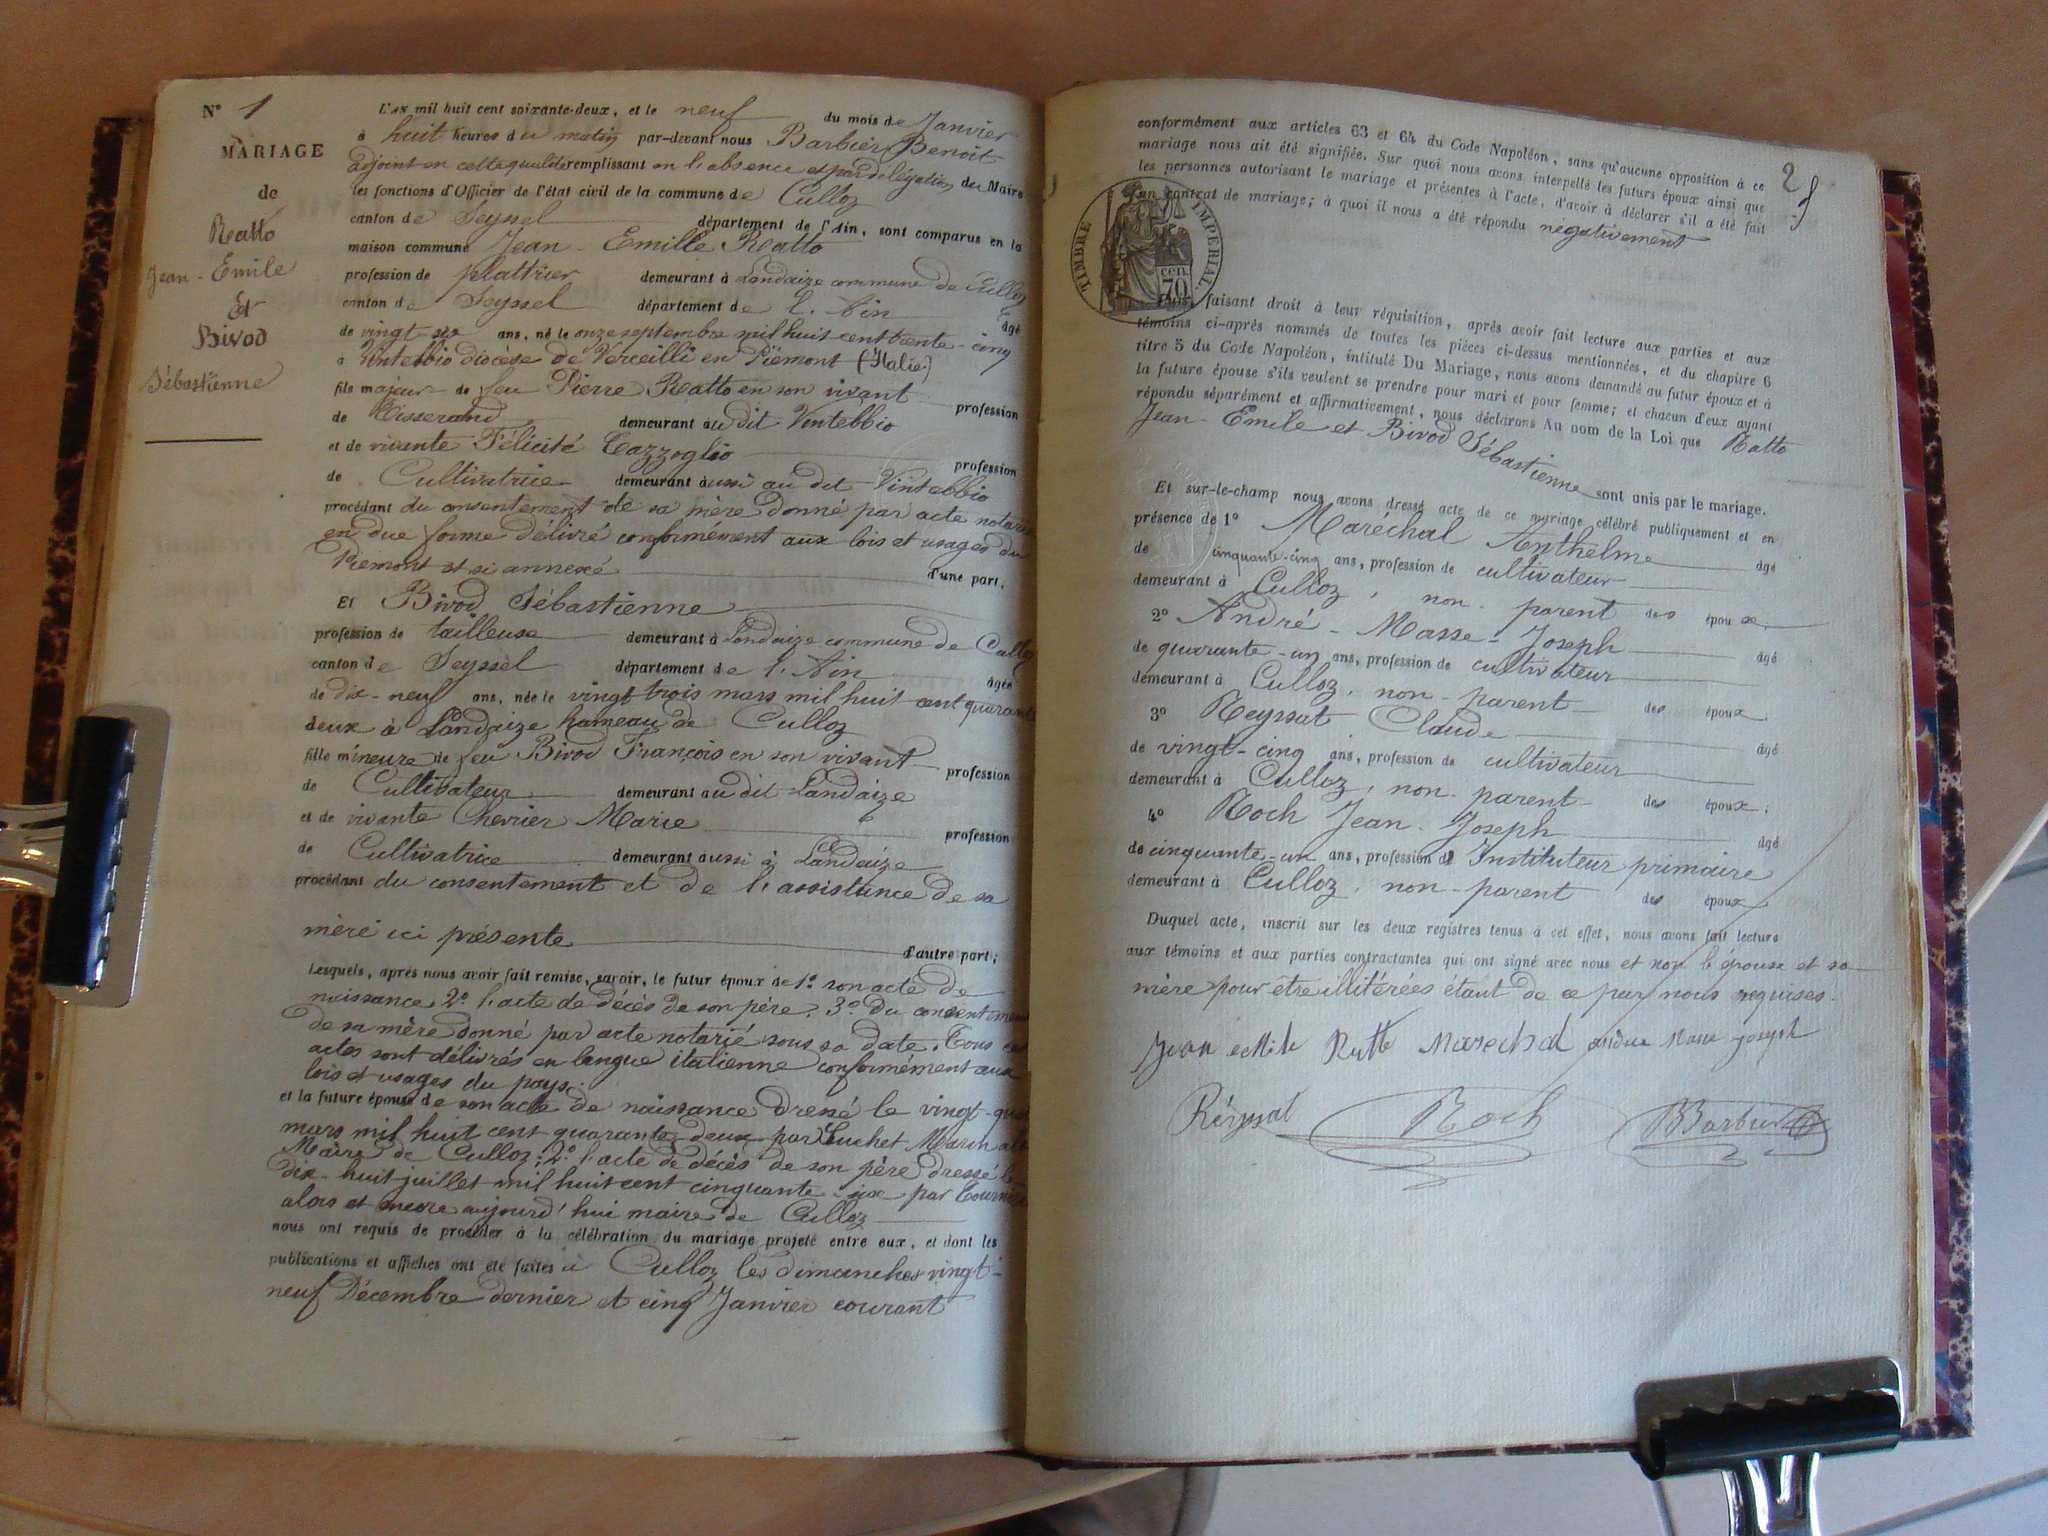 N° 1
MARIAGE
de
Ratto
Jean-Emile
Et
Bivod
Sébastienne
L'AN mil huit cent soixante-deux, et le neuf du mois de Janvier
à huit heures du matin par-devant nous Barbier Benoit
adjoint en cette qualité remplissant en l'absence et par délégation du Maire
les fonctions d'Officier de l'état civil de la commune de Culloz
canton de Seyssel département de l'Ain, sont comparus en la
maison commune Jean-Emille Ratto
profession de plattrier demeurant à Landaize commune de Culloz
canton de Seyssel département de l'Ain âgé
de vingt six ans, né le onze septembre mil huit cent trente-cinq
à Vintebbio diocèse de Verceilli en Piémont (Italie)
fils majeur de feu Pierre Ratto en son vivant profession
de Tisserand demeurant au dit Vintebbio
et de vivante Félicité Cazzoglio profession
de Cultivatrice demeurant aussi au dit Vintebbio
procédant du consentement de sa mère donné par acte notarié
en due forme délivré conformément aux lois et usages du
Piemont et si annexé d'une part.
Et Bivod Sébastienne
profession de tailleuse demeurant à Landaize commune de Culloz
canton de Seyssel département de l'Ain âgée
de dix-neuf ans, née le vingt trois mars mil huit cent quarante
deux à Landaize hameau de Culloz
fille mineure de feu Bivod François en son vivant profession
de Cultivateur demeurant au dit Landaize
et de vivante Chevrier Marie profession
de Cultivatrice demeurant aussi à Landaize
procédant du consentement et de l'assistance de sa
mère ici présente d'autre part;
Lesquels, après nous avoir fait remise, savoir, le futur époux de 1° son acte de
naissance 2° l'acte de décès de son père. 3° Du consentement
de sa mère donné par acte notarié sous sa date. Tous ces
actes sont délivrés en langue italienne conformément aux
lois et usages du pays.
et la future épouse de son acte de naissance dressé le vingt-
mars mil huit cent quarante deux par Luchet
Maire de Culloz; 2° l'acte de décès de son père dressé le
dix-huit juillet mil huit cent cinquante six par
alors et encore aujourd'hui maire de Culloz
nous ont requis de procéder à la célébration du mariage projeté entre eux, et dont les
publications et affiches ont été faites à Culloz les dimanches vingt-
neuf Décembre dernier et cinq Janvier courant
2
conformément aux articles 63 et 64 du Code Napoléon, sans qu'aucune opposition à ce
mariage nous ait été signifiée. Sur quoi nous avons interpellé les futurs époux ainsi que
les personnes autorisant le mariage et présentes à l'acte, d'avoir à déclarer s'il a été fait
un contrat de mariage; à quoi il nous a été répondu négativement
TIMBRE IMPERIAL
70 cen.
faisant droit à leur réquisition, après avoir fait lecture aux parties et aux
témoins ci-après nommés de toutes les pièces ci-dessus mentionnées, et du chapitre 6
titre 5 du Code Napoléon, intitulé Du Mariage, nous avons demandé au futur époux et à
la future épouse s'ils veulent se prendre pour mari et pour femme; et chacun d'eux ayant
répondu séparément et affirmativement, nous déclarons Au nom de la Loi que Ratto
Jean-Emile et Bivod Sébastienne sont unis par le mariage.
Et sur-le-champ nous avons dressé acte de ce mariage célébré publiquement et en
présence de 1° Maréchal Anthelme âgé
de cinquante-cinq ans, profession de cultivateur
demeurant à Culloz, non-parent des époux.
2° André-Masse-Joseph âgé
de quarante-un ans, profession de cultivateur
demeurant à Culloz, non-parent des époux.
3° Reyssat Claude âgé
de vingt-cinq ans, profession de cultivateur
demeurant à Culloz, non-parent des époux;
4° Roch Jean-Joseph âgé
de cinquante-un ans, profession d'Instituteur primaire
demeurant à Culloz, non-parent des époux.
Duquel acte, inscrit sur les deux registres tenus à cet effet, nous avons fait lecture
aux témoins et aux parties contractantes qui ont signé avec nous et non l'épouse et sa
mère pour être illitérées étant de ce par nous requises.
Jean Ratto Marechal andre Masse joseph
Roch Barbier